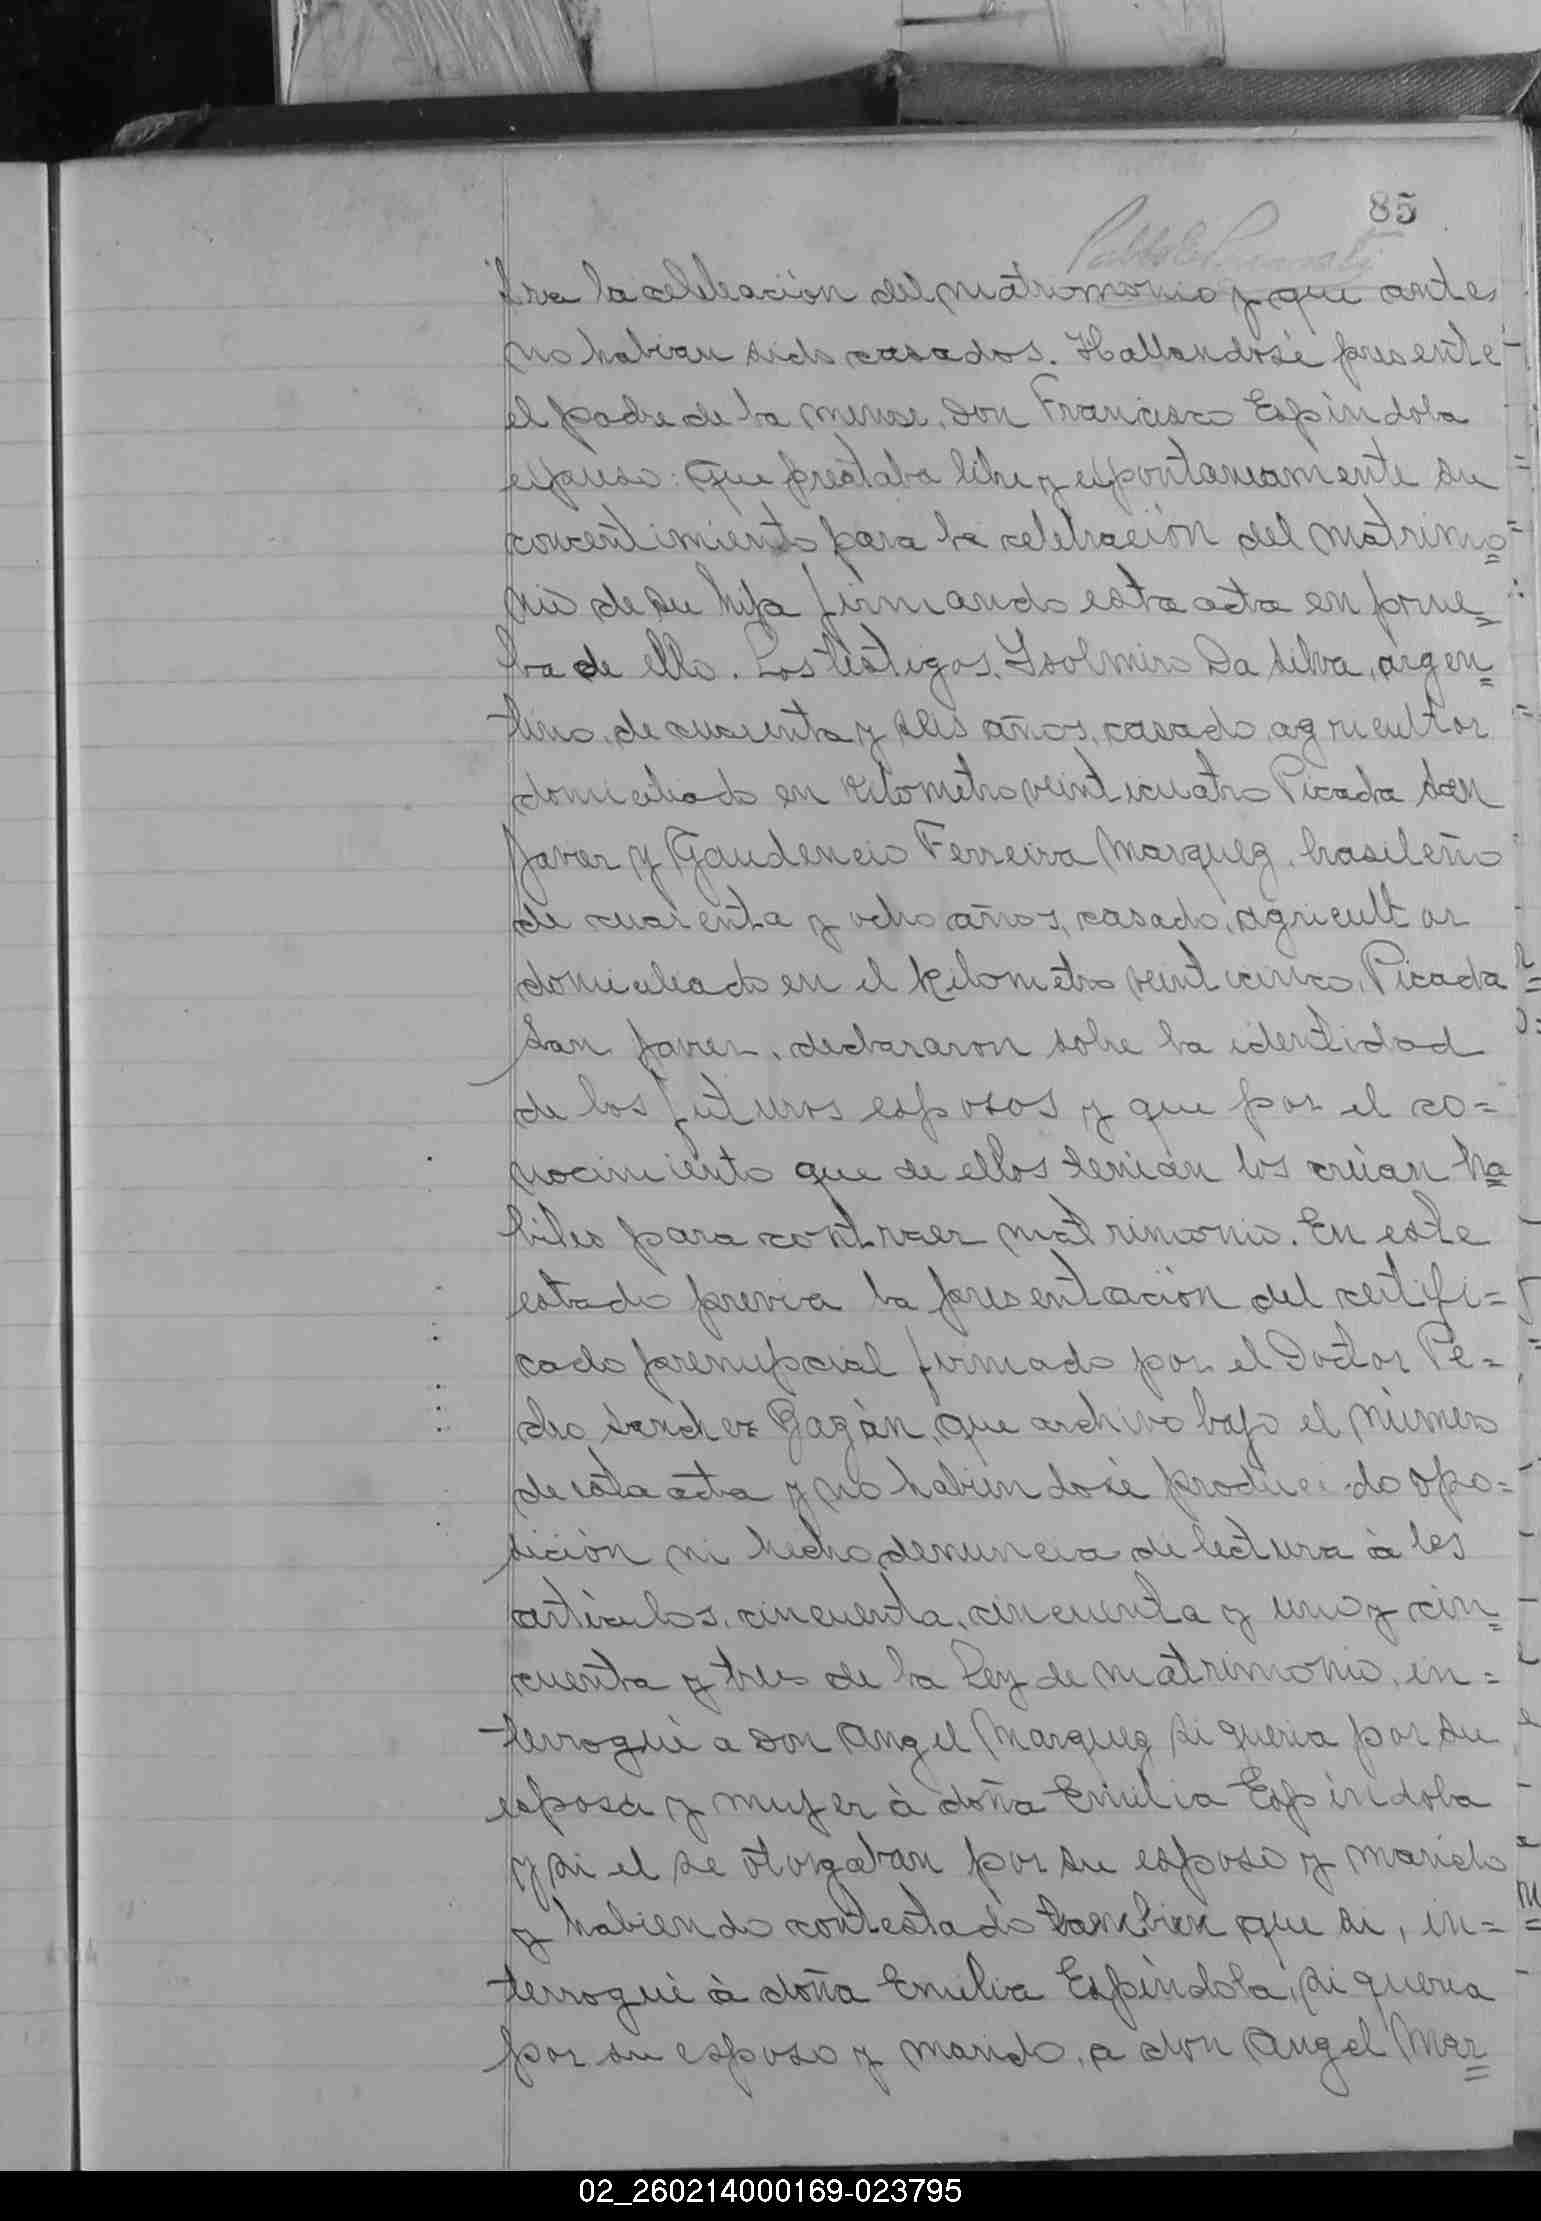 85
tra la celebración del matrimonio y que antes
no habian sido casados. Hallandosé presente
el padre de la menor, Don Francisco Espíndola
expuso: Que prestaba libre y expontaneamente su
concentimiento para la celebración del matrimo=
nio de su hija firmando esta acta en prue=
ba de ello. Los testigos, Ysolmiro Da Silva, argen=
tino, de cuarenta y seis años, casado, agricultor
domiciliado en Kilometro veinticuatro Picada San
Javer y Gaudencio Ferreira Marquez, brasileño
de cuarenta y ocho años, casado, agricultor
domiciliado en el Kilometro veinticinco, Picada
San Javier, declararon sobre la identidad
de los futuros esposos y que por el co=
nocimiento que de ellos tenian los creian ha=
biles para contraer matrimonio. En este
estado previa la presentación del certifi=
cado prenupcial firmado por el Doctor Pe=
dro Sanchez Gazán, que archivo bajo el número
de esta acta y no habiendosé producido opo=
sición ni hecho denuncia di lectura à los
artículos, cincuenta, cincuenta y uno y cin=
cuenta y tres de la Ley de Matrimonio, in=
terrogué a Don Angel Marquez si queria por su
esposa y mujer à doña Emilia Espíndola
y si el se otorgaban por su esposo y marido
y habiendo contestado tambien que si, in=
terrogué à doña Emilia Espíndola, si queria
por su esposo y marido, a don Angel Mar=
02_260214000169-023795